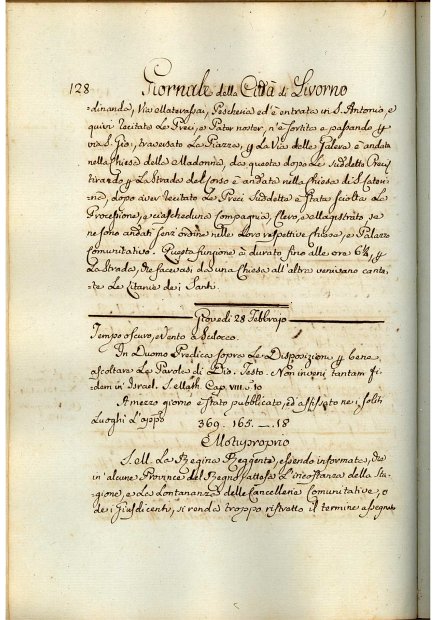 128 Giornale della Città di Livorno
-dinanda, Via Materassai, Pescheria ed è entrata in S. Antonio, e
quivi recitate le Preci, e Pater noster, n'è sortita e passando p
via S. Gio:, traversato la Piazza, p la Via delle Galere è andata
nella Chiesa della Madonna, da questa dopo le suddette Preci
tirando p la Strada del Corso è andata nella Chiesa di S. Cateri-
na, dopo aver recitato le Preci suddette è stata sciolta la
Processione, e ciascheduna Compagnia, Clero, e Magistrato, se
ne sono andati senz'ordine nelle loro respettive Chiese, e Palazzo
Comunitativo. Questa funzione à durato fino alle ore 6¾, p
la Strada, che facevasi da una Chiesa all'altra venivano canta-
-te le Litanie dei Santi.
Giovedì 28 Febbrajo
Tempo oscuro, e Vento a Scirocco.
In Duomo Predica sopra le Disposizioni p bene
ascoltare le Parole di Dio. Testo. Non inveni tantam fi-
dem in Israel. S. Matth. Cap. VIII. 10
A mezzo giorno è stato pubblicato, ed affissato nei soliti
Luoghi l'app.o
369. 165. — 18
Motuproprio
S. M. La Regina Reggente, essendo informata, che
in alcune Province del Regno attesa l'incostanza della Sta-
gione, e la lontananza delle Cancellerie Comunitative, o
dei Giusdicenti, si renda troppo ristretto il termine assegnat